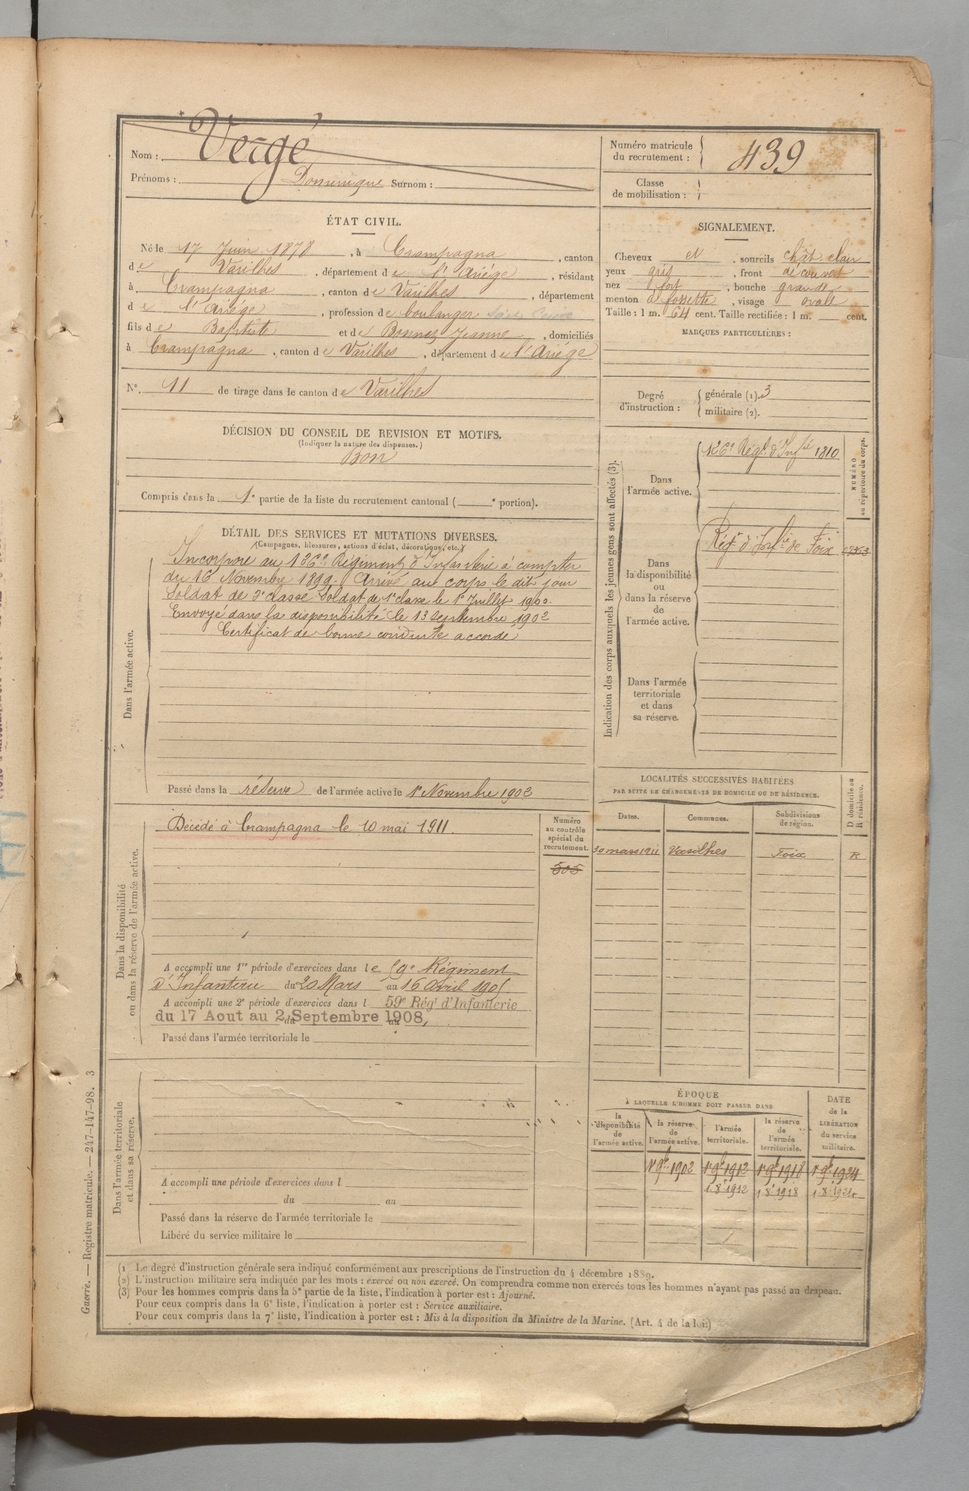 Nom : Vergé
Prénoms : Dominique Surnom :
Numéro matricule du recrutement : 439
Classe de mobilisation :
ÉTAT CIVIL.
Né le 17 Juin 1878, à Crampagna, canton
de Varilhes, département de l'Ariège, résidant
à Crampagna, canton de Varilhes, département
d e l'Ariège, profession de boulanger
fils de Baptiste et de Bonnes Jeanne, domiciliés
à Crampagna, canton de Varilhes, département de l'Ariège
N° 11 de tirage dans le canton de Varilhes
SIGNALEMENT.
Cheveux et, sourcils chât clair
yeux gris, front découvert
nez fort, bouche grande
menton à fossette, visage ovale
Taille : 1 m. 64 cent. Taille rectifiée : 1 m. cent.
MARQUES PARTICULIÈRES :
Degré d'instruction : générale (1). 3
militaire (2).
DÉCISION DU CONSEIL DE REVISION ET MOTIFS.
(Indiquer la nature des dispenses.)
Bon
Compris dans la 1e partie de la liste du recrutement cantonal ( e portion).
DÉTAIL DES SERVICES ET MUTATIONS DIVERSES.
(Campagnes, blessures, actions d'éclat, décorations, etc.)
Dans l'armée active.
Incorporé au 126e Régiment d'Infanterie à compter
du 16 Novembre 1899. Arrivé au corps le dit jour
Soldat de 2e classe Soldat de 1e classe le 1er Juillet 1900.
Envoyé dans la disponibilité le 13 Septembre 1902
Certificat de bonne conduite accordé
Passé dans la réserve de l'armée active le 1er Novembre 1902
Indication des corps auxquels les jeunes gens sont affectés (3).
Dans l'armée active.
126e Régt d'Infie 1810
Dans la disponibilité ou dans la réserve de l'armée active.
Régt d'Infie de Foix
Dans l'armée territoriale et dans sa réserve.
NUMÉRO au répertoire du corps.
Dans la disponibilité ou dans la réserve de l'armée active.
Décédé à Crampagna le 10 mai 1911.
Numéro au contrôle spécial du recrutement.
505
A accompli une 1re période d'exercices dans le 59e Régiment
d'Infanterie du 20 Mars au 16 Avril 1905
A accompli une 2e période d'exercices dans l 59e Régt d'Infanterie
du 17 Aout au 2 Septembre 1908,
Passé dans l'armée territoriale le
LOCALITÉS SUCCESSIVES HABITÉES
PAR SUITE DE CHANGEMENTS DE DOMICILE OU DE RÉSIDENCE.
Dates. Communes. Subdivisions de région. D domicile ou R résidence.
10 mars 1911 Varilhes Foix R
Dans l'armée territoriale et dans sa réserve.
A accompli une période d'exercices dans l
du au
Passé dans la réserve de l'armée territoriale le
Libéré du service militaire le
ÉPOQUE
À LAQUELLE L'HOMME DOIT PASSER DANS
la disponibilité de l'armée active. la réserve de l'armée active. l'armée territoriale. la réserve de l'armée territoriale. DATE de la LIBÉRATION du service militaire.
1er 9bre 1902 1er 9bre 1912 1er 9bre 1918 1er 9bre 1924
1 8e 1912 1 8e 1918 1 8e 1924
(1) Le degré d'instruction générale sera indiqué conformément aux prescriptions de l'instruction du 4 décembre 1889.
(2) L'instruction militaire sera indiquée par les mots : exercé ou non exercé. On comprendra comme non exercés tous les hommes n'ayant pas passé au drapeau.
(3) Pour les hommes compris dans la 5e partie de la liste, l'indication à porter est : Ajourné.
Pour ceux compris dans la 6e liste, l'indication à porter est : Service auxiliaire.
Pour ceux compris dans la 7e liste, l'indication à porter est : Mis à la disposition du Ministre de la Marine. (Art. 4 de la loi.)
Guerre. — Registre matricule. — 247-147-98. 3